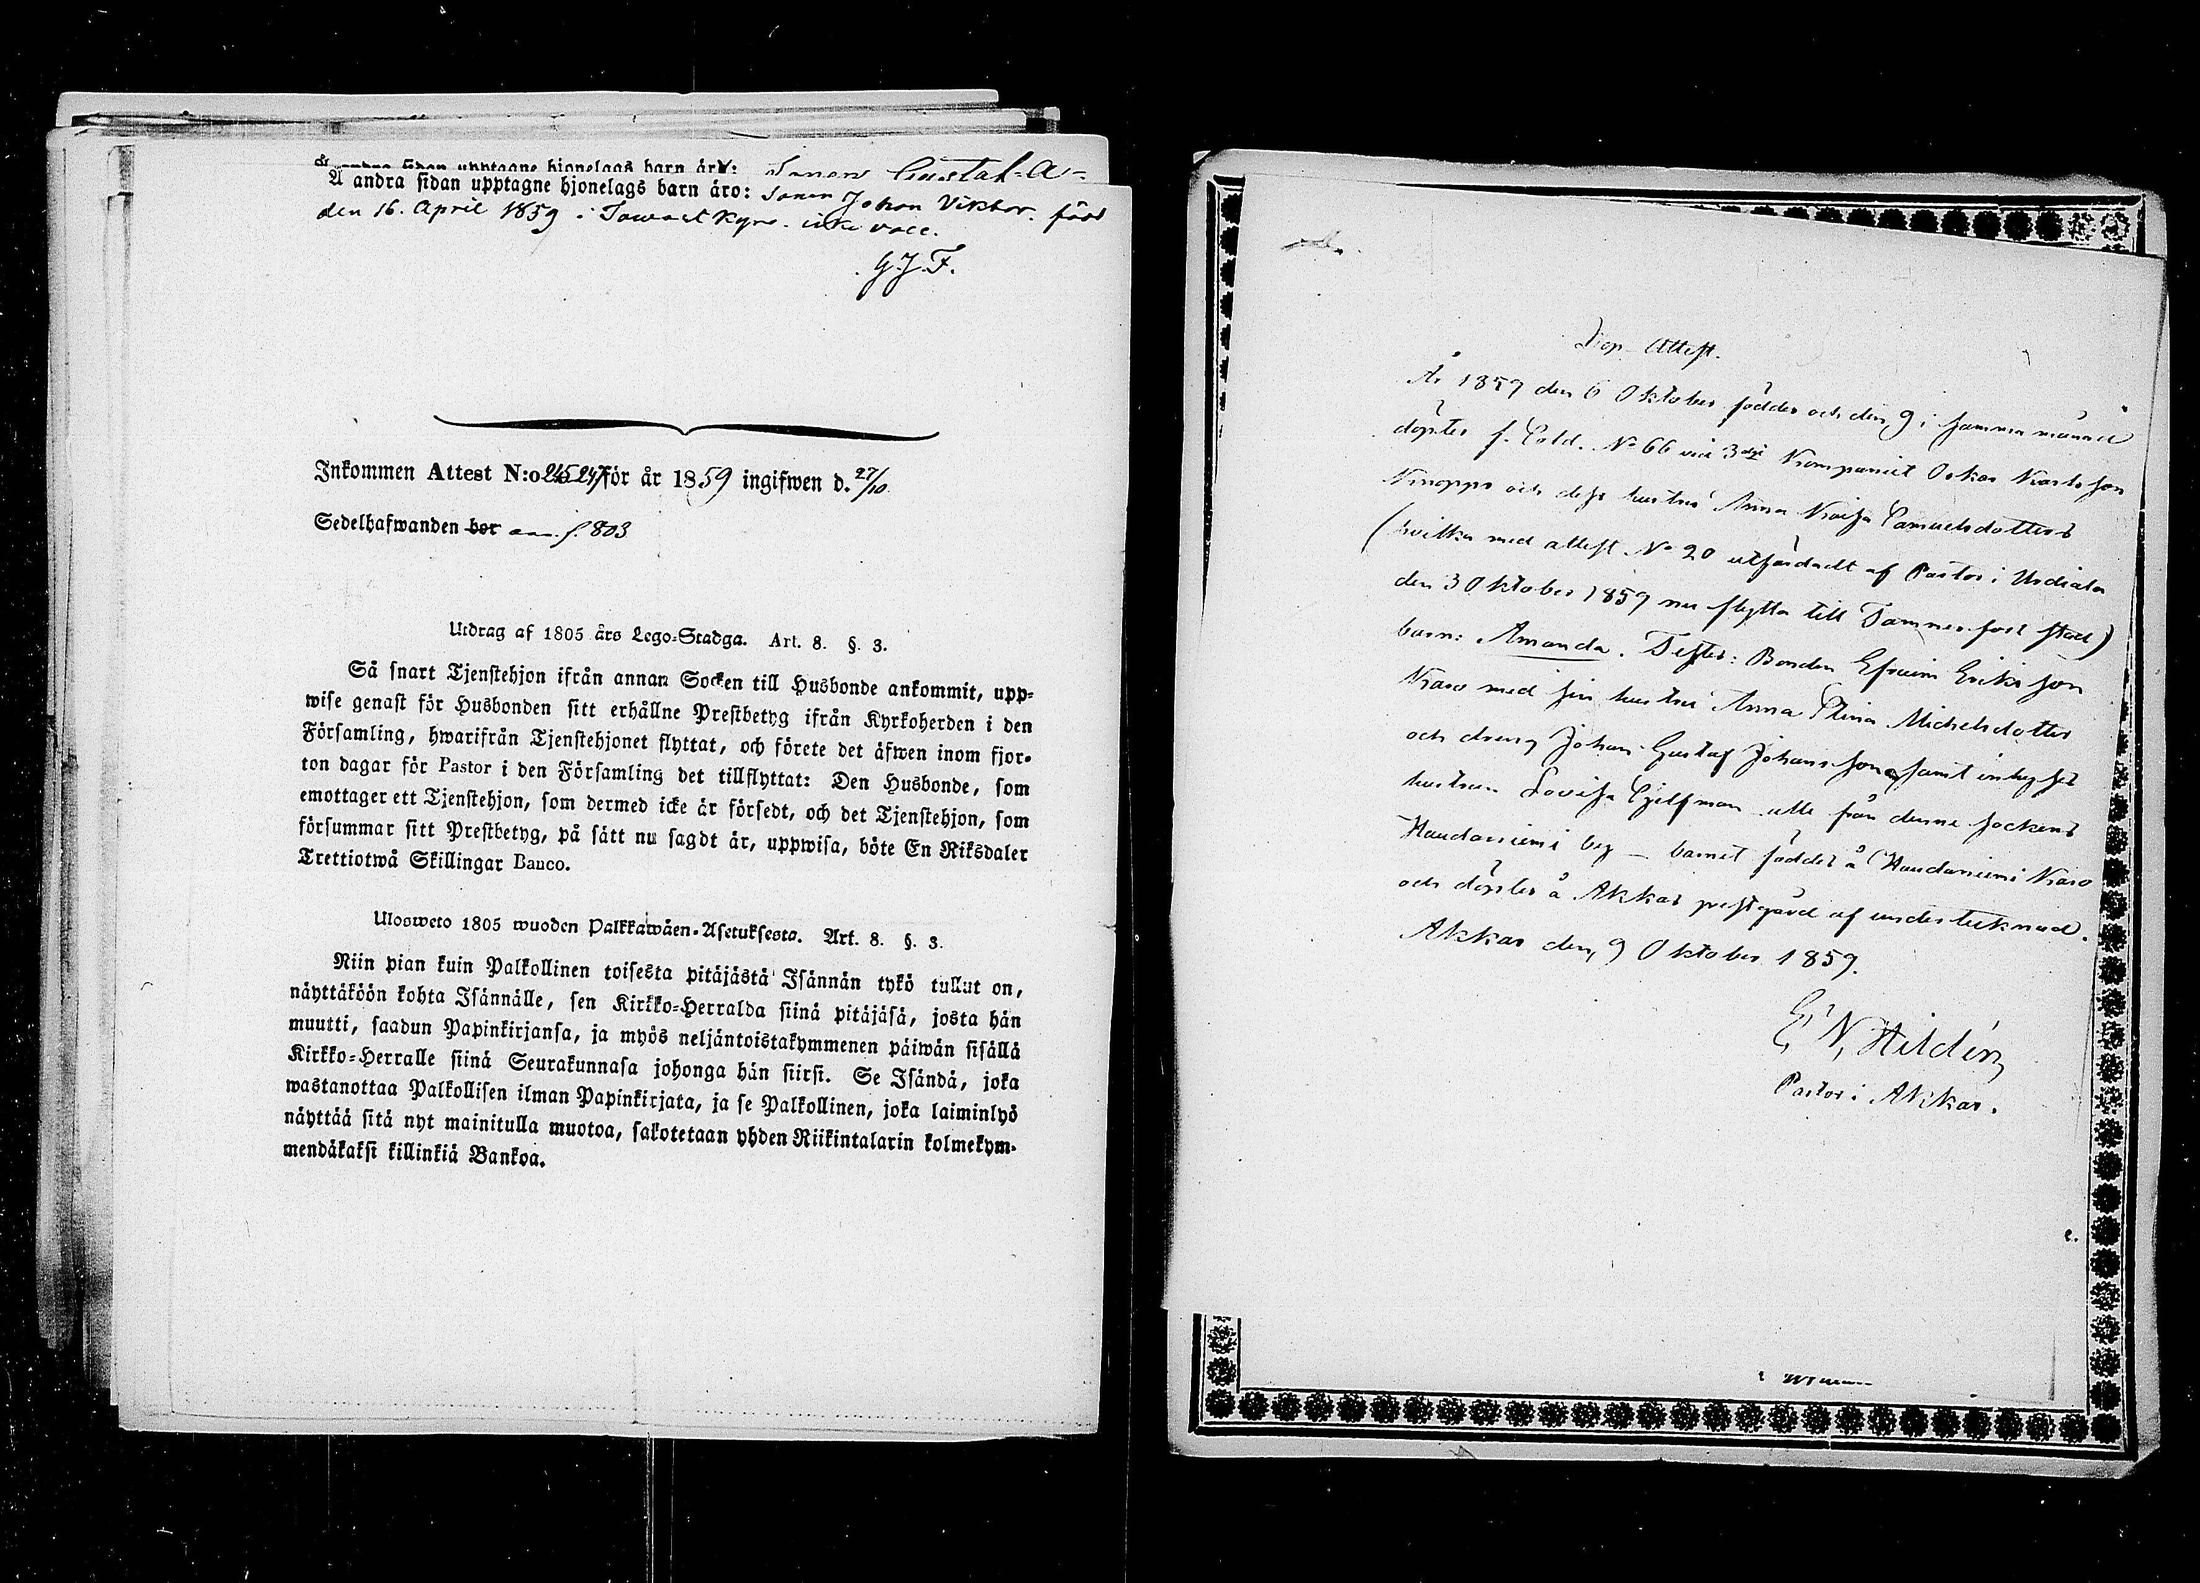 Å andra sidan upptagne hjonelags barn äro: Sonen Gustaf A-
Å andra sidan upptagne hjonelags barn äro: Sonen Johan Viktor. född
den 16. April 1859 i Tawastkyro. icke vacc.
G. J. F.
Inkommen Attest N:o 245 247 för år 1859 ingifwen d. 27/10.
Sedelhafwanden bor ann. f. 803
Utdrag af 1805 års Lego-Stadga. Art. 8. §. 3.
Så snart Tjenstehjon ifrån annan Socken till Husbonde ankommit, upp-
wise genast för Husbonden sitt erhållne Prestbetyg ifrån Kyrkoherden i den
Församling, hwarifrån Tjenstehjonet flyttat, och förete det äfwen inom fjor-
ton dagar för Pastor i den Församling det tillflyttat: Den Husbonde, som
emottager ett Tjenstehjon, som dermed icke är försedt, och det Tjenstehjon, som
försummar sitt Prestbetyg, på sätt nu sagdt är, uppwisa, böte En Riksdaler
Trettiotwå Skillingar Banco.
Ulosweto 1805 wuoden Palkkawäen-Asetuksesta. Art. 8. §. 3.
Niin pian kuin Palkollinen toisesta pitäjästä Isännän tykö tullut on,
näyttäköön kohta Isännälle, sen Kirkko-Herralda siinä pitäjäsä, josta hän
muutti, saadun Papinkirjansa, ja myös neljäntoistakymmenen päiwän sisällä
Kirkko-Herralle siinä Seurakunnasa johonga hän siirsi. Se Isändä, joka
wastanottaa Palkollisen ilman Papinkirjata, ja se Palkollinen, joka laiminlyö
näyttää sitä nyt mainitulla muotoa, sakotetaan yhden Riikintalarin kolmekym-
mendäkaksi killinkiä Bankoa.
Dop-Attest.
År 1859 den 6 Oktober föddes och den 9 i samma månad
döptes f. Sold. No 66 vid 3dje Kompaniet Oskar Karlsson
Knopps och dess hustrus Anna Kaisa Samuelsdotters
(hvilka med attest No 20 utfärdadt af Pastor i Urdiala
den 3 Oktober 1859 nu flytta till Tammerfors stad)
barn: Amanda. Testes: Bonden Efraim Eriksson
Karo med sin hustru Anna Stina Michelsdotter
och dreng Johan Gustaf Johansson, samt inhyses
hustrun Lovisa alle från denne sockens
Haudaniemi by — barnet föddes å Haudaniemi Karo
och döptes å Akkas prestgård af undertecknad.
Akkas den 9 Oktober 1859.
E. N. Hildén
Pastor i Akkas.